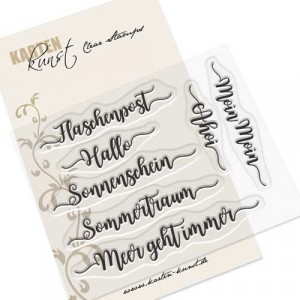 KARTEN
Kunst
Clear Stamps
Flaschenpost
Hallo
Sonnenschein
Sommertraum
Meer geht immer
Ahoi
Moin Moin
www.karten-kunst.de